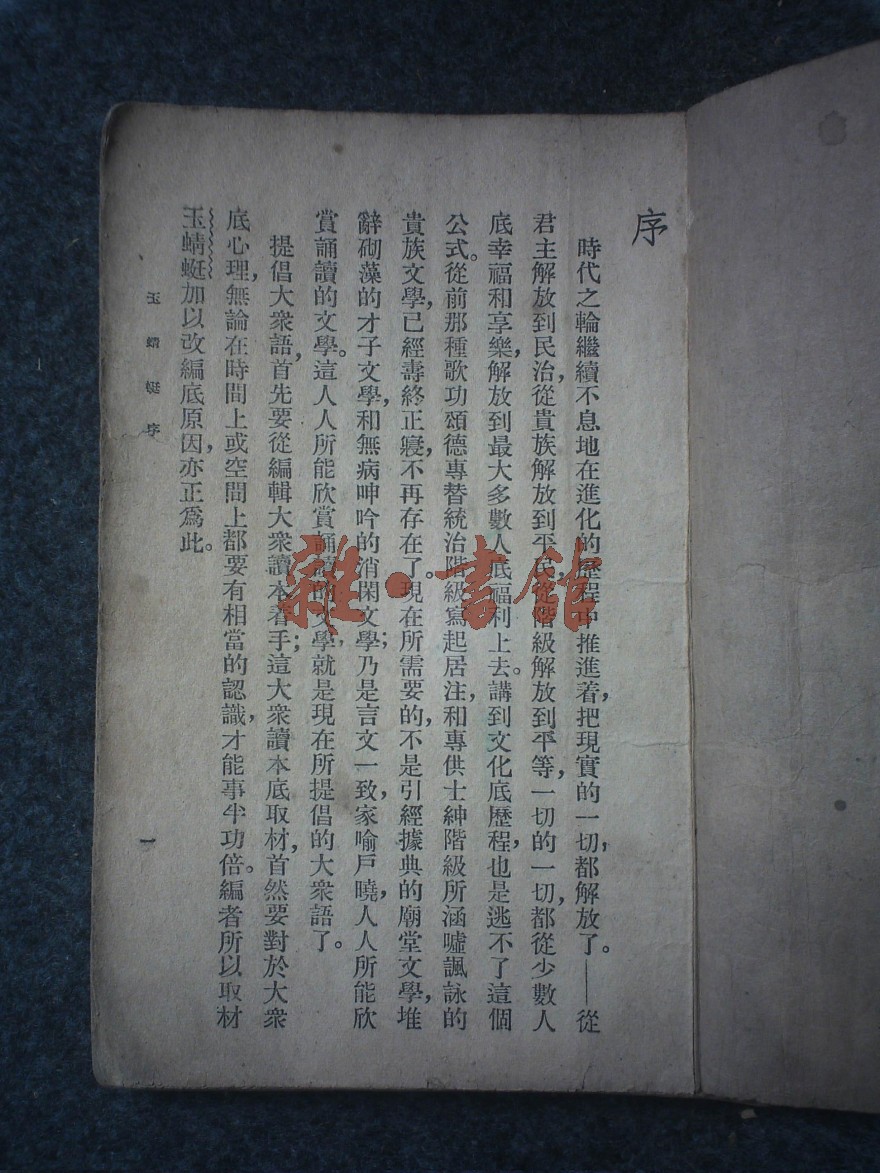 序
時代之輪繼續不息地在進化的歷程中推進着，把現實的一切，都解放了。——從
君主解放到民治，從貴族解放到平民，從階級解放到平等，一切的一切，都從少數人
底幸福和享樂，解放到最大多數人底福利上去。講到文化底歷程，也是逃不了這個
公式。從前那種歌功頌德專替統治階級寫起居注，和專供士紳階級所涵噓諷詠的
貴族文學，已經壽終正寢，不再存在了。現在所需要的，不是引經據典的廟堂文學，堆
辭砌藻的才子文學，和無病呻吟的消閑文學；乃是言文一致，家喻戶曉，人人所能欣
賞誦讀的文學。這人人所能欣賞誦讀的文學，就是現在所提倡的大衆語了。
提倡大衆語，首先要從編輯大衆讀本着手；這大衆讀本底取材，首然要對於大衆
底心理，無論在時間上或空間上都要有相當的認識，才能事半功倍。編者所以取材
玉蜻蜓加以改編底原因，亦正爲此。
玉蜻蜓序
一
雜·書館